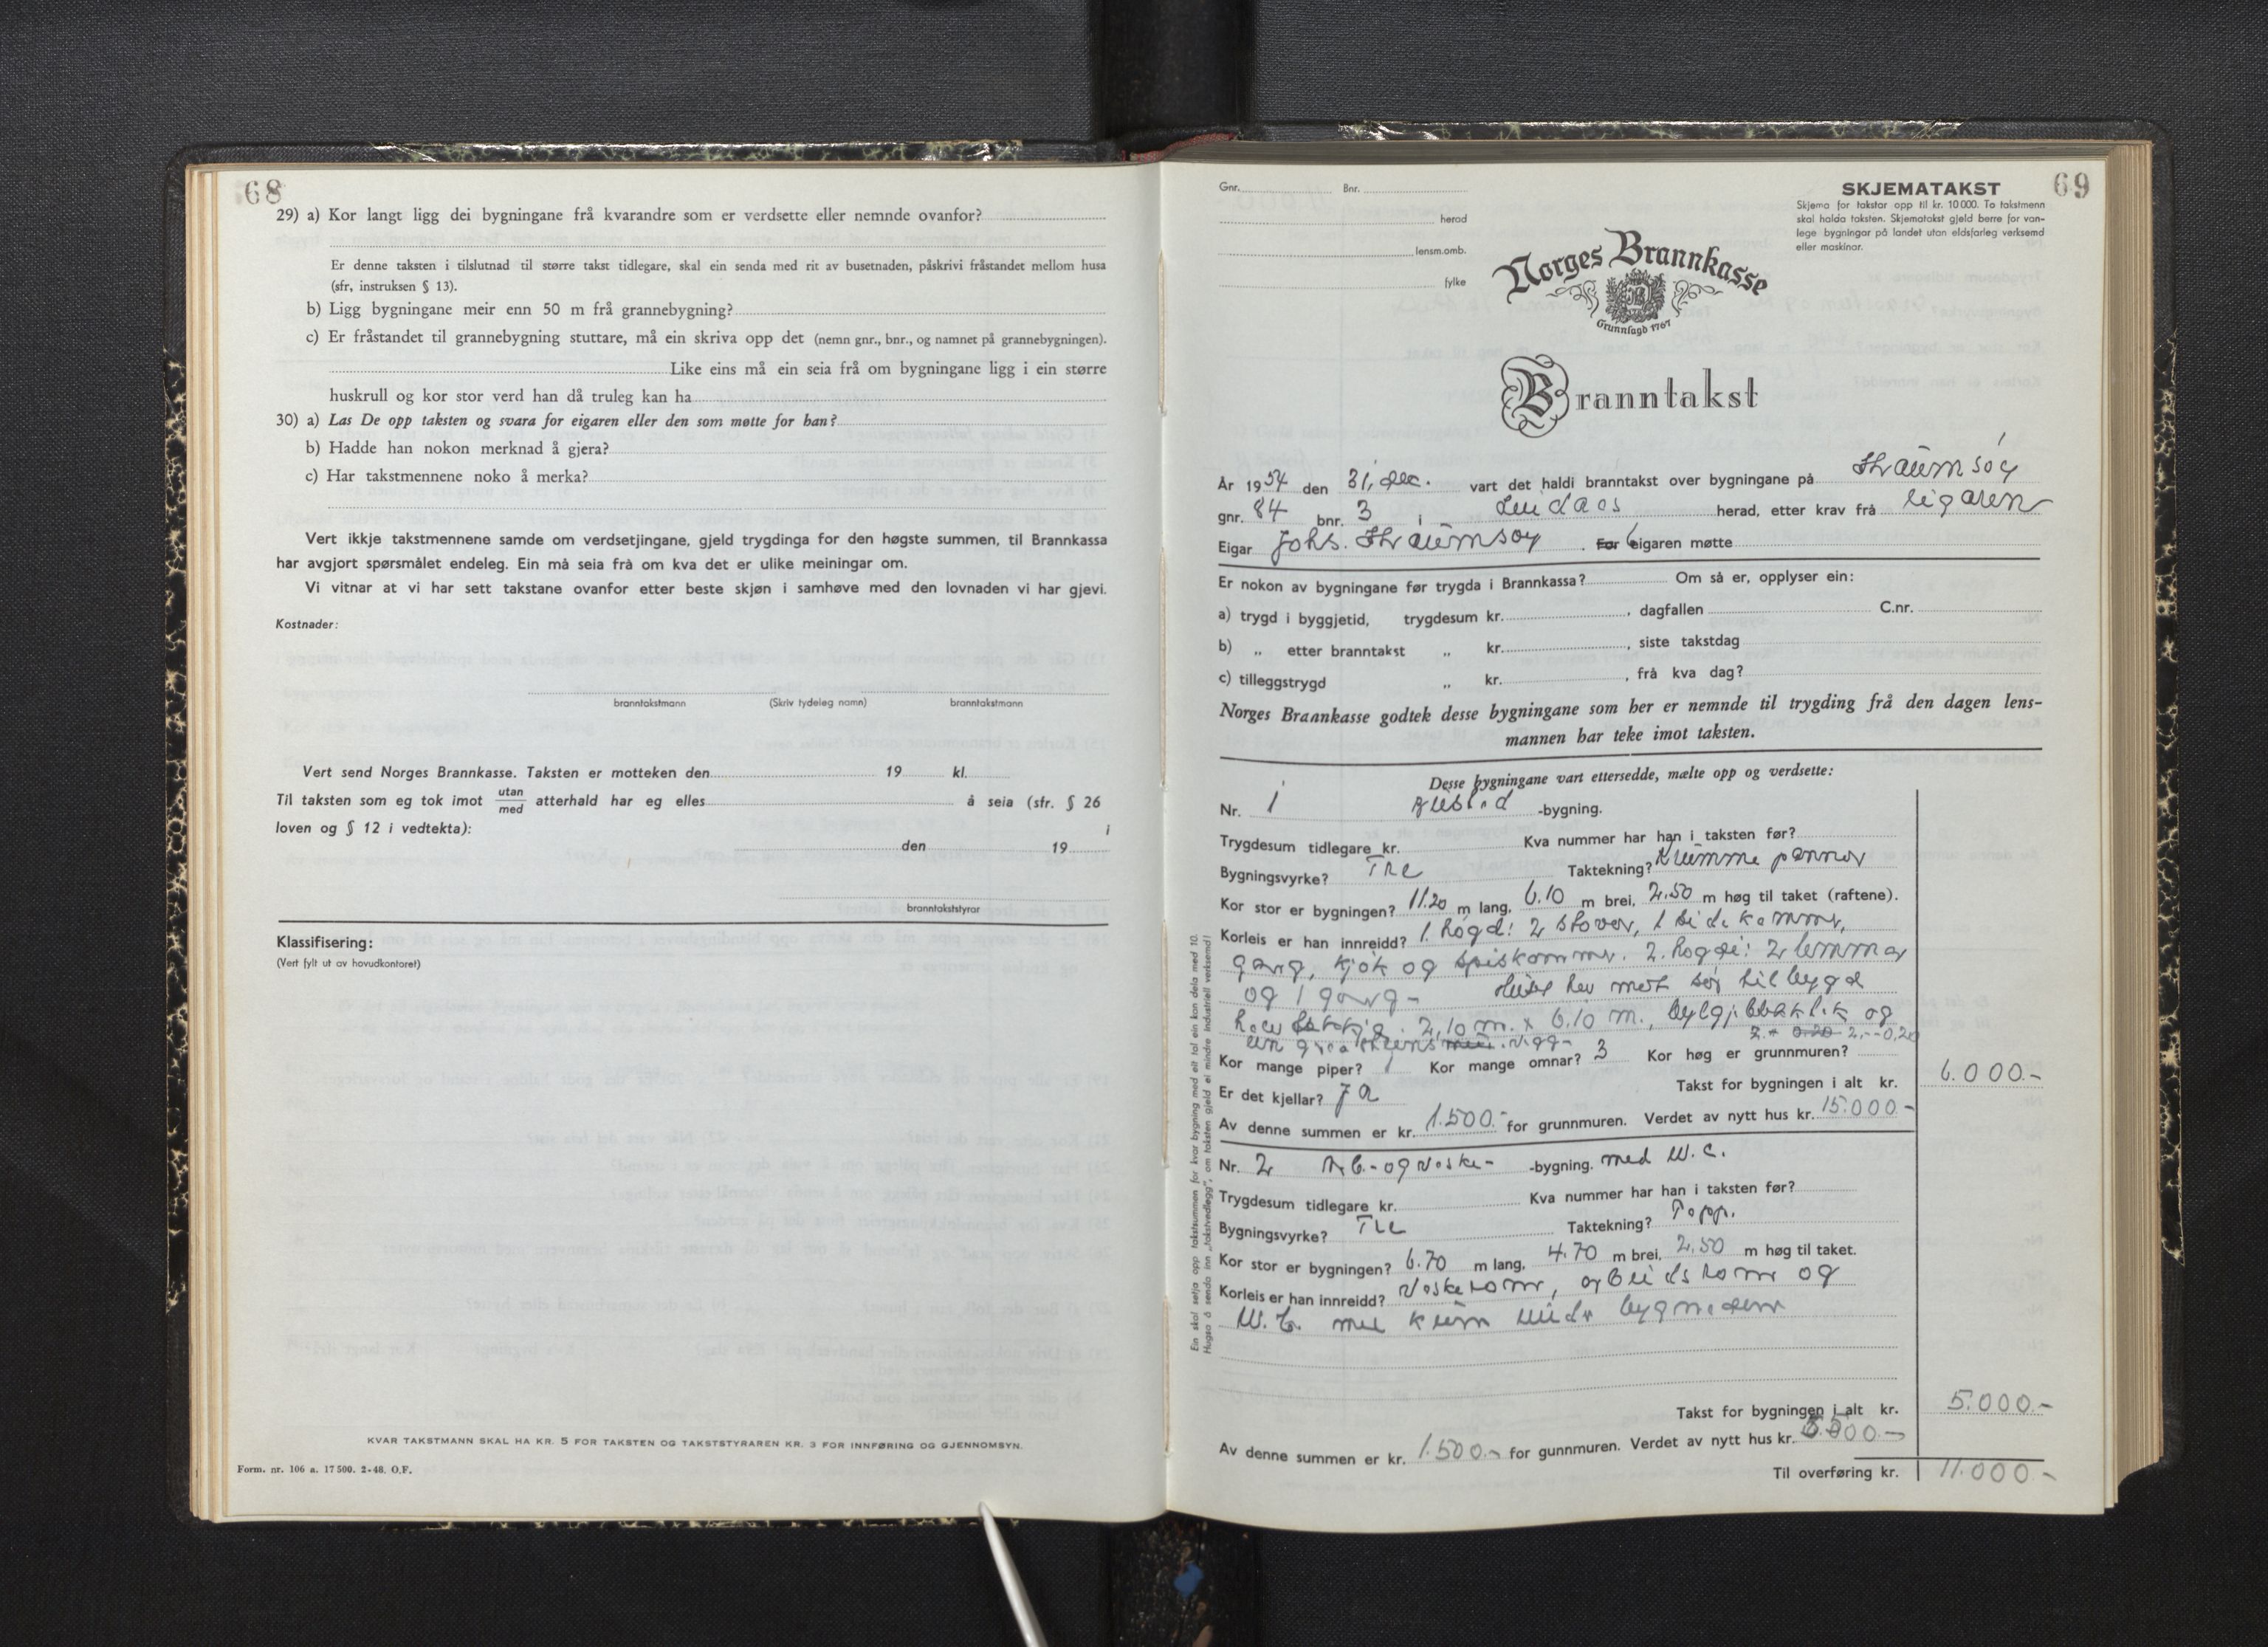 68
29) a) Kor langt ligg dei bygningane frå kvarandre som er verdsette eller nemnde ovanfor?
Er denne taksten i tilslutnad til større takst tidlegare, skal ein senda med rit av busetnaden, påskrivi fråstandet mellom husa
(sfr, instruksen § 13).
b) Ligg bygningane meir enn 50 m frå grannebygning?
c) Er fråstandet til grannebygning stuttare, må ein skriva opp det (nemn gnr., bnr., og namnet på grannebygningen).
Like eins må ein seia frå om bygningane ligg i ein større
huskrull og kor stor verd han då truleg kan ha
30) a) Las De opp taksten og svara for eigaren eller den som møtte for han?
b) Hadde han nokon merknad å gjera?
c) Har takstmennene noko å merka?
Vert ikkje takstmennene samde om verdsetjingane, gjeld trygdinga for den høgste summen, til Brannkassa
har avgjort spørsmålet endeleg. Ein må seia frå om kva det er ulike meiningar om.
Vi vitnar at vi har sett takstane ovanfor etter beste skjøn i samhøve med den lovnaden vi har gjevi.
Kostnader:
branntakstmann (Skriv tydeleg namn) branntakstmann
Vert send Norges Brannkasse. Taksten er motteken den 19 kl.
Til taksten som eg tok imot utan/med atterhald har eg elles å seia (sfr. § 26
loven og § 12 i vedtekta): i
den 19
branntakststyrar
Klassifisering:
(Vert fylt ut av hovudkontoret)
KVAR TAKSTMANN SKAL HA KR. 5 FOR TAKSTEN OG TAKSTSTYRAREN KR. 3 FOR INNFØRING OG GJENNOMSYN.
Form. nr. 106 a. 17 500. 2-48. O.F.
69
Gnr. Bnr.
herad
lensm.omb.
fylke
SKJEMATAKST
Skjema for takstar opp til kr. 10 000. To takstmenn
skal halda taksten. Skjematakst gjeld berre for van-
lege bygningar på landet utan eldsfarleg verksemd
eller maskinar.
Norges Brannkasse
Grunnlagd 1767
Branntakst
År 1954 den 31. des. vart det haldi branntakst over bygningane på Straumsøy
gnr. 84 bnr. 3 i Lindaas herad, etter krav frå eigaren
Eigar Johs. Straumsøy. For eigaren møtte
Er nokon av bygningane før trygda i Brannkassa? Om så er, opplyser ein:
a) trygd i byggjetid, trygdesum kr. , dagfallen C.nr.
b) „ etter branntakst „ kr. , siste takstdag
c) tilleggstrygd „ kr. , frå kva dag?
Norges Brannkasse godtek desse bygningane som her er nemnde til trygding frå den dagen lens-
mannen har teke imot taksten.
Desse bygningane vart ettersedde, mælte opp og verdsette:
Nr. 1 Husb.d -bygning.
Trygdesum tidlegare kr. Kva nummer har han i taksten før?
Bygningsvyrke? Tre Taktekning? Krumme pannor
Kor stor er bygningen? 11.20 m lang, 6.10 m brei, 2.50 m høg til taket (raftene).
Korleis er han innreidd? 1. høgd: 2 stover, 1 sidekammer,
gang, kjøk og spiskammer. 2. høgde: 2 lemmar
og 1 gang - Huset hev mot sør tilbygd
2,10 m. x 6.10 m., og
2,--0,20
Kor mange piper? 1 Kor mange omnar? 3 Kor høg er grunnmuren?
Er det kjellar? Ja Takst for bygningen i alt kr. 6.000.-
Av denne summen er kr. 1.500.- for grunnmuren. Verdet av nytt hus kr. 15.000.-
Nr. 2 Arb.- og vaske- -bygning. med W.C.
Trygdesum tidlegare kr. Kva nummer har han i taksten før?
Bygningsvyrke? Tre Taktekning? Papp.
Kor stor er bygningen? 6.70 m lang, 4.70 m brei, 2.50 m høg til taket.
Korleis er han innreidd? Vaskerom, arbeidsrom og
W.C. med kum under bygnaden
Takst for bygningen i alt kr. 5.000.-
Av denne summen er kr. 1.500.- for gunnmuren. Verdet av nytt hus kr.
Til overføring kr. 11.000.-
Ein skal setja opp takstsummen for kvar bygning med eit tal ein kan dela med 10.
Hugsa å senda inn „takstvedlegg", om taksten gjeld ei mindre industriell verksemd!